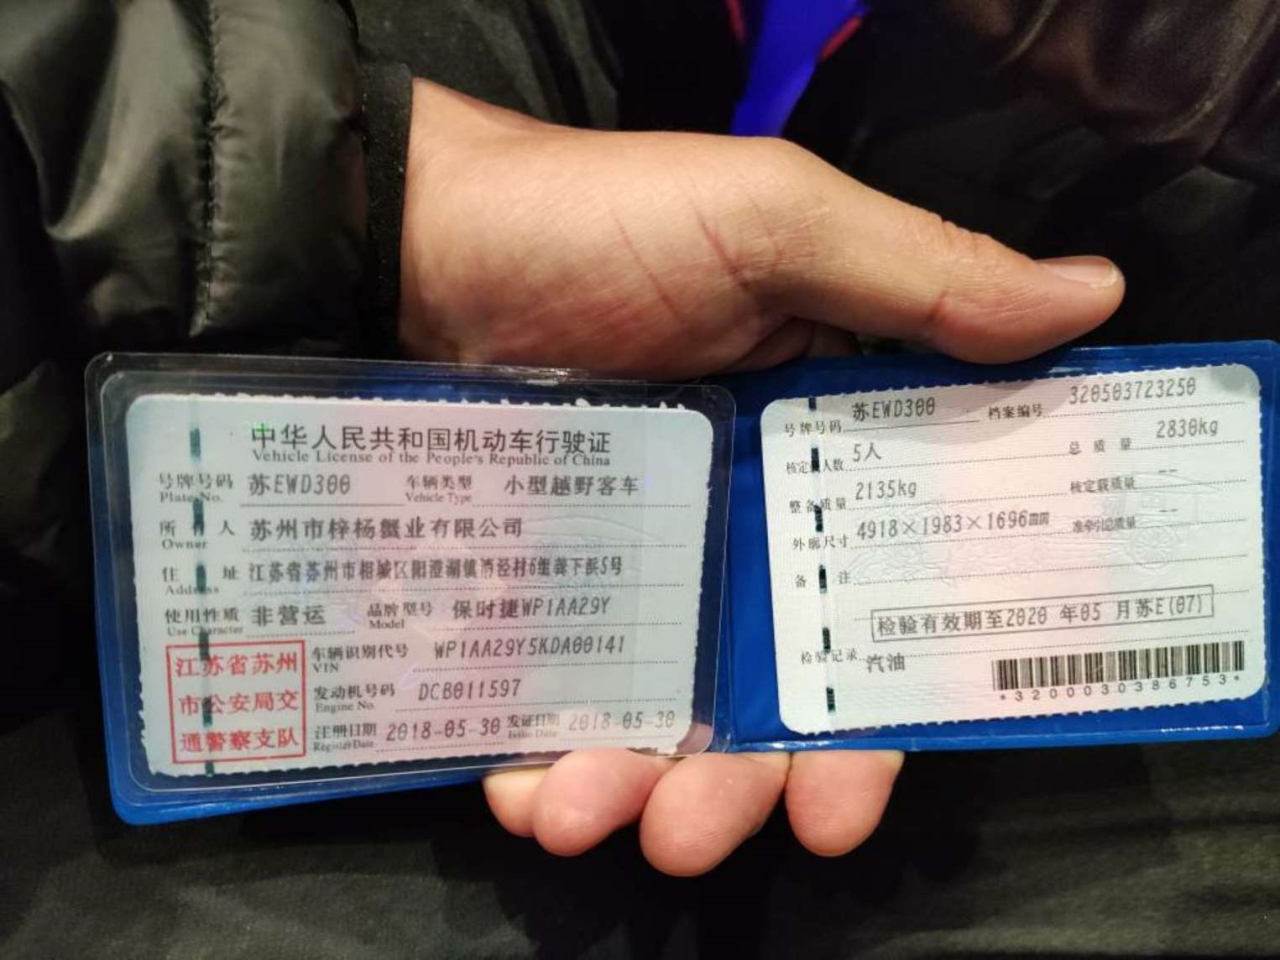 中华人民共和国机动车行驶证
Vehicle License of the People's Republic of China
号牌号码 苏EWD300 车辆类型 小型越野客车
Plate No. Vehicle Type
所有人 苏州市梓杨蟹业有限公司
Owner
住址 江苏省苏州市相城区阳澄湖镇消泾村6组姜下浜5号
Address
使用性质 非营运 品牌型号 保时捷WP1AA29Y
Use Character Model
江苏省苏州
市公安局交
通警察支队
车辆识别代号 WP1AA29Y5KDA00141
VIN
发动机号码 DCB011597
Engine No.
注册日期 2018-05-30 发证日期 2018-05-30
Register Date Issue Date
号牌号码 苏EWD300 档案编号 320503723250
核定载人数 5人 总质量 2830kg
整备质量 2135kg 核定载质量 --
外廓尺寸 4918×1983×1696mm 准牵引总质量 --
备注
检验有效期至2020年05月苏E(07)
检验记录 汽油
*3200030386753*